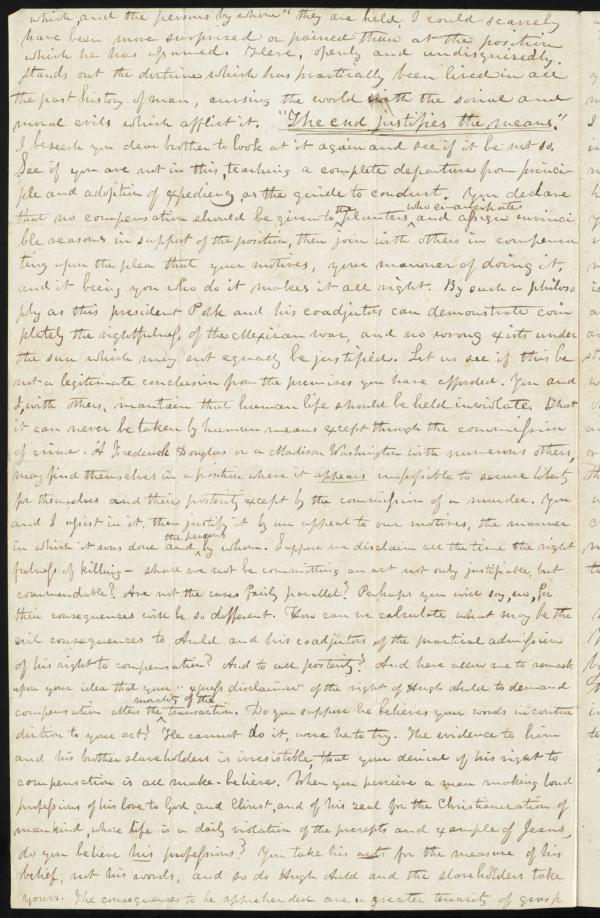 which, and the persons by whom" they are held, I could scarcely
have been more surprised or pained than at the position
which he has assumed. Here, openly and undisguisedly,
stands out the doctrine which has practically been lived in all
the past history of man, cursing the world with the social and
moral evils which afflict it. "The end justifies the means."
I beseech you dear brother to look at it again and see if it be not so.
See if you are not in this, teaching a complete departure from princi-
ple and adoption of expediency as the guide to conduct. You declare
that no compensation should be given to the planters who emancipates and assign invinci
ble reasons in support of the position, then join with others in compensa
ting upon the plea that your motives, your manner of doing it,
and it being you who do it makes it all right. By such a philoso
phy as this president Polk and his coadjutors can demonstrate com
pletely the rightfulness of the Mexican war, and no wrong exists under
the sun which may not equally be justified. Let us see if this be
not a legitimate conclusion from the premises you have afforded. You and
I, with others, maintain that human life should be held inviolate. That
it can never be taken by human means except through the commission
of crime. A Frederick Douglas or a Madison Washington with numerous others,
may find themselves in a position where it appears impossible to secure liberty
for themselves and their posterity except by the commission of a murder. You
and I assist in it, then justify it by an appeal to our motives, the manner
in which it was done and, the persons by whom. Suppose we disclaim all the time the right
fulness of killing — shall we not be committing an act not only justifiable, but
commendable? Are not the cases fairly parallel? Perhaps you will say, no, for
their consequences will be so different. How can we calculate what may be the
evil consequences to Auld and his coadjutors of the practical admission
of his right to compensation? And to all posterity? And here allow me to remark
upon your idea that your "express disclaimer" of the right of Hugh Auld to demand
compensation alters the morality of the transaction. Do you suppose he believes your words in contra
diction to your act? He cannot do it, were he to try. The evidence to him
and his brother slaveholders is irresistible, that your denial of his right to
compensation is all make-believe. When you perceive a man making loud
professions of his love to God, and Christ, and of his zeal for the Christianization of
mankind, whose life is a daily violation of the precepts and example of Jesus,
do you believe his professions? You take his acts for the measure of his
belief, not his words, and so do Hugh Auld and the slaveholders take
yours. The consequences to be apprehended are a greater tenacity of grasp